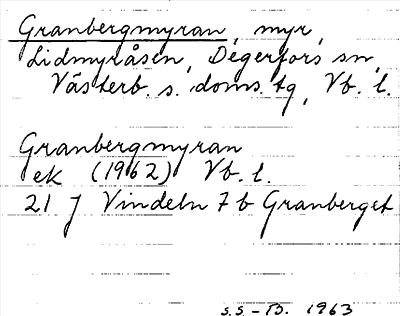 Granbergmyran, myr,
Lidmyråsen, Degerfors sn,
Västerb. s. doms. tg, Vb. l.
Granbergmyran
ek (1962) Vb. l.
21 J Vindeln 7 b Granberget
S.S.-B. 1963